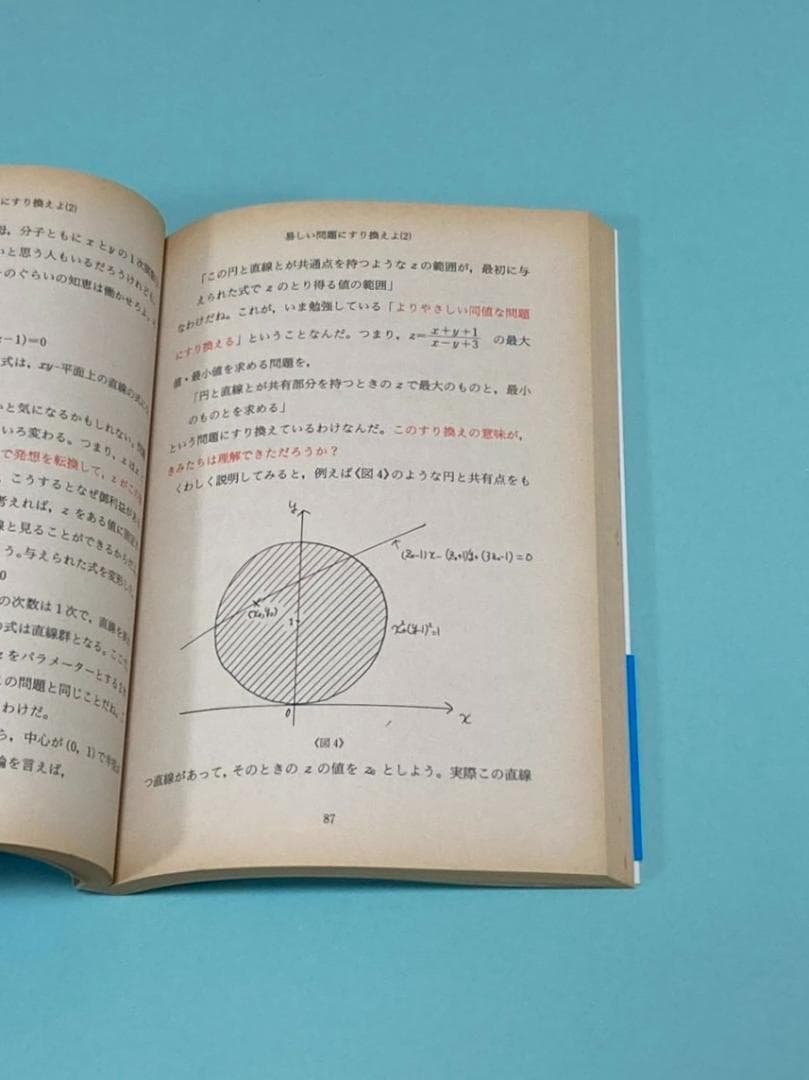 にすり換えよ(2)
分子ともにxとyの1次
いと思う人もいるだろうけれども,
のぐらいの知恵は働かせろよ
-1)=0
式は, xy-平面上の直線の式
と気になるかもしれない.
いろ変わる。つまり,
で発想を転換して, zがこの
こうするとなぜ御利益がある
考えれば, zをある値に固定
線と見ることができるからだ
う。与えられた式を変形し
0
の次数は1次で, 直線を表
式は直線群となる。ここで
zをパラメーターとする
の問題と同じことだね.
わけだ。
ら, 中心が(0, 1)で半径
論を言えば,
易しい問題にすり換えよ(2)
「この円と直線とが共通点を持つようなzの範囲が, 最初に与
えられた式でzのとり得る値の範囲」
なわけだね。これが, いま勉強している「よりやさしい同値な問題
にすり換える」ということなんだ。つまり, z=(x+y+1)/(x-y+3) の最大
値・最小値を求める問題を,
「円と直線とが共有部分を持つときのzで最大のものと, 最小
のものとを求める」
という問題にすり換えているわけなんだ。このすり換えの意味が,
きみたちは理解できただろうか?
くわしく説明してみると, 例えば《図4》のような円と共有点をも
y
(z₀-1)x-(z₀+1)y+(3z₀-1)=0
(x₀,y₀)
1
x²+(y-1)²=1
0
x
《図4》
つ直線があって, そのときのzの値をz₀としよう。実際この直線
87